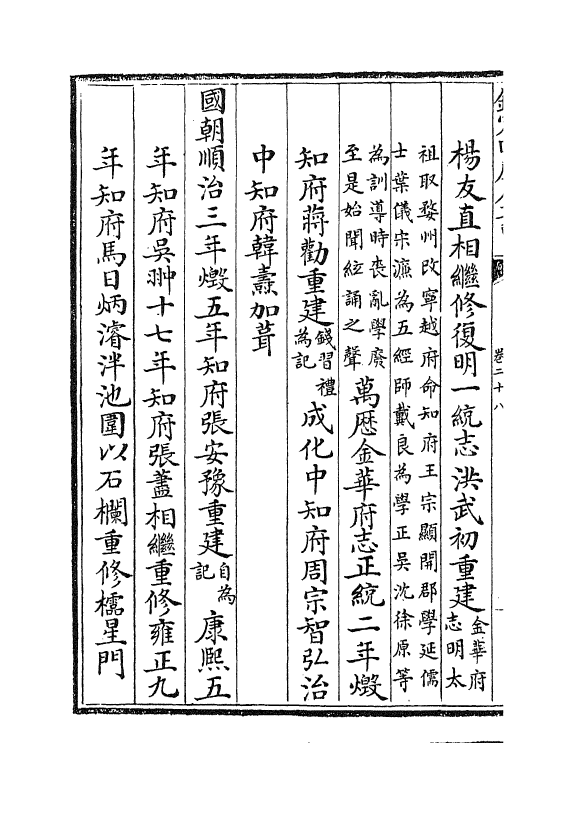 卷二十八
楊友直相繼修復明一統志洪武初重建金華府志明太
祖取婺州改寧越府命知府王宗顯開郡學延儒
士葉儀宋濂為五經師戴良為學正吳沈徐原等
為訓導時喪亂學廢
至是始聞絃誦之聲
萬厯金華府志正統二年燬
知府蔣勸重建錢習禮為記成化中知府周宗智弘治
中知府韓燾加葺
國朝順治三年燬五年知府張安豫重建自為記康熙五
年知府吳翀十七年知府張藎相繼重修雍正九
年知府馬日炳濬泮池圍以石欄重修櫺星門